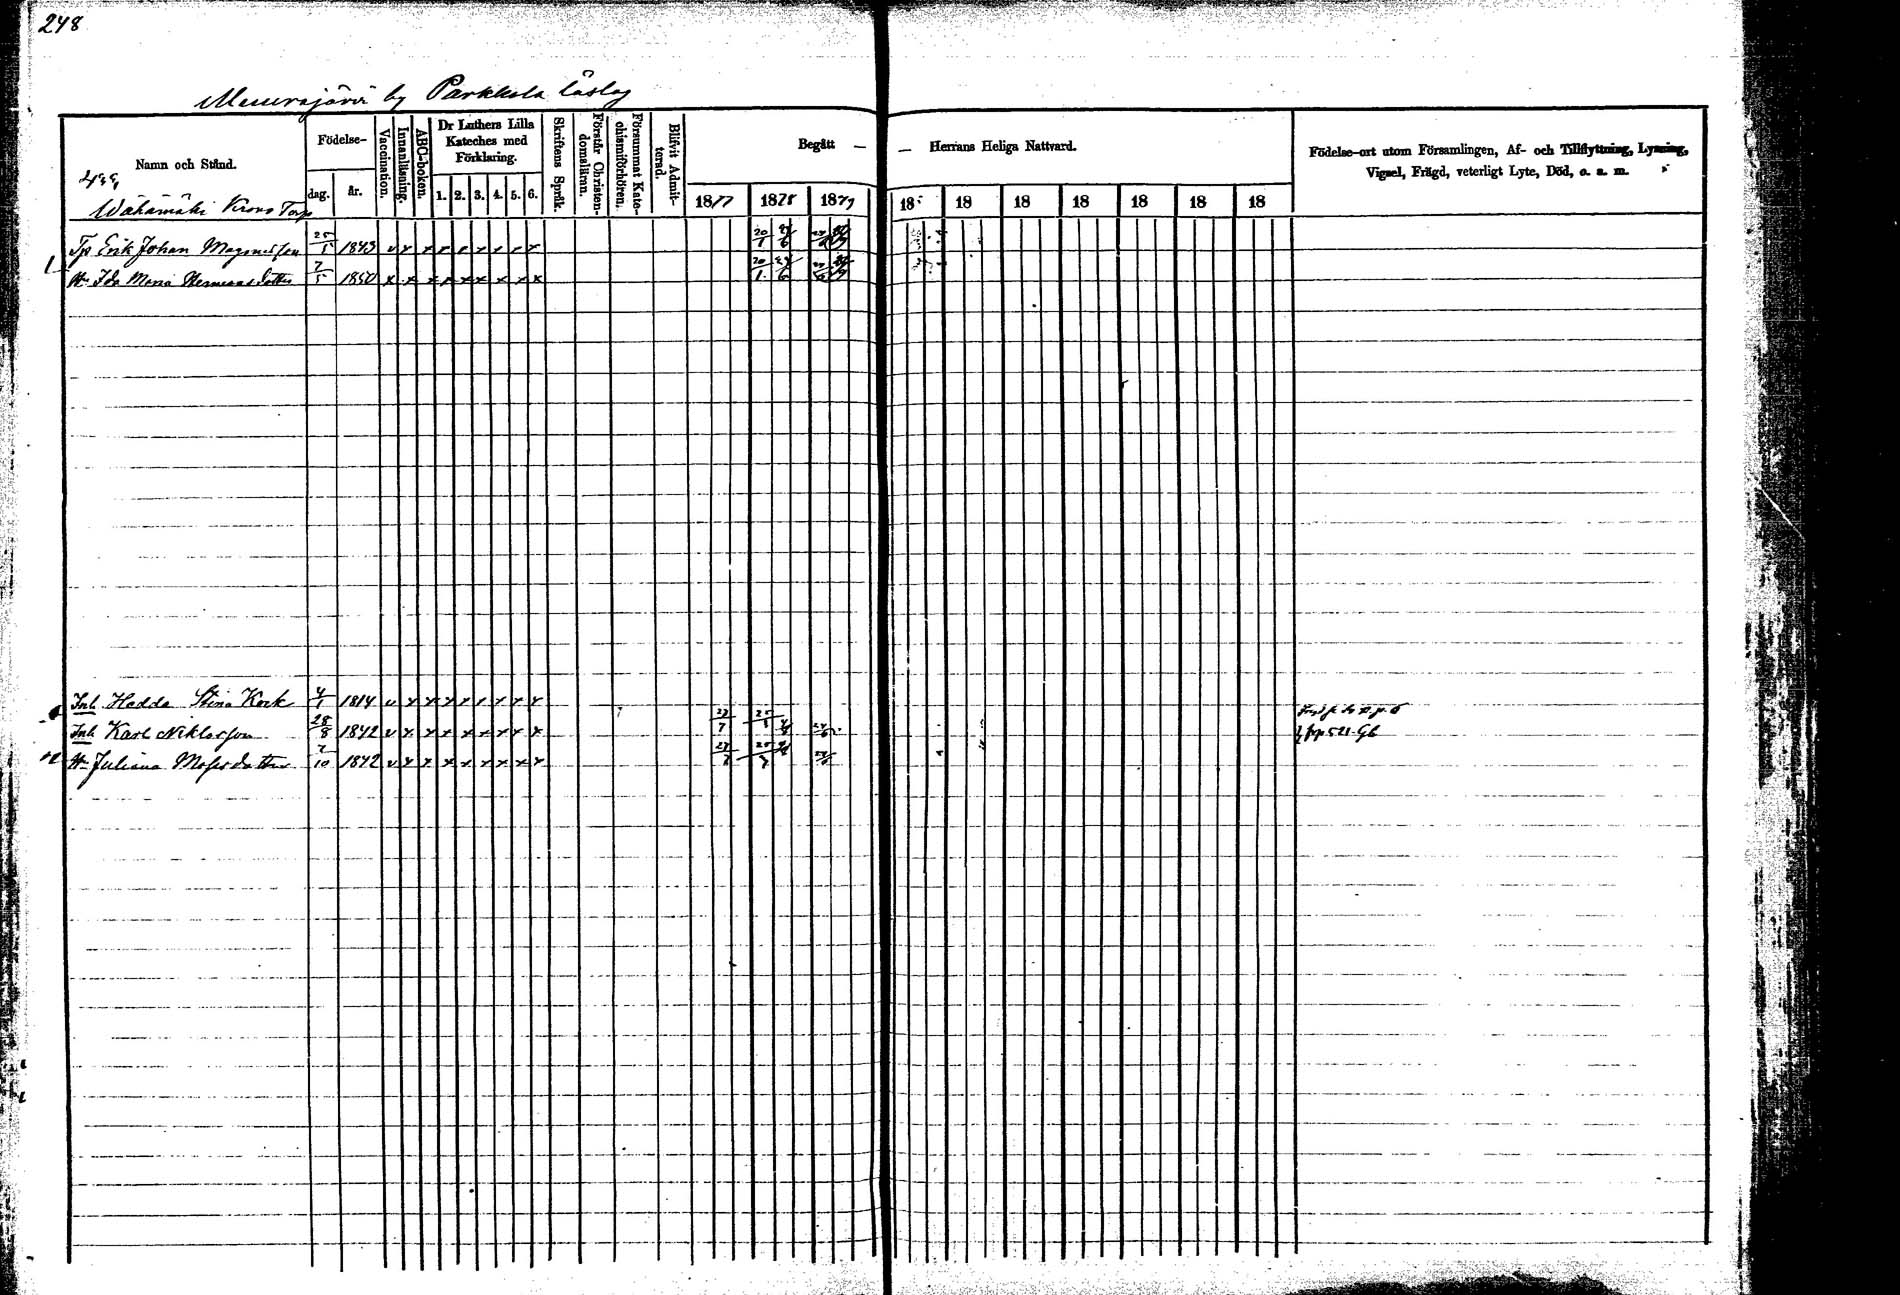 248
by Parkkola läslag
Namn och Stånd.
Födelse-
dag.
år.
Vaccination.
Innanläsning.
ABC-boken.
Dr Luthers Lilla
Kateches med
Förklaring.
1. 2. 3. 4. 5. 6.
Skriftens Språk.
Förstår Christen-
domsläran.
Försummat Kate-
chismiförhören.
Blifvit Admit-
terad.
Begått — — Herrans Heliga Nattvard.
1877 1878 1879 18 18 18 18 18 18 18
Födelse-ort utom Församlingen, Af- och Tillflyttning, Lysning,
Vigsel, Frägd, veterligt Lyte, Död, o. s. m.
Wähämäki Krono Torp
Tp Erik Johan Magnusson 25/1 1843 v x x x x x x x x 20/1
1 Hu Ida Maria Hermansdotter 7/5 1850 x x x x x x x x x 20/1
Inh. Hedda Stina Kock 4/1 1814 v x x x x x x x x
Inh. Karl Niklasson 28/8 1842 v x x x x x x x x 27/7 25/
p 521 Gb
Hu Juliana Mosesdotter 7/10 1842 v x x x x x x x x 27/7 25/